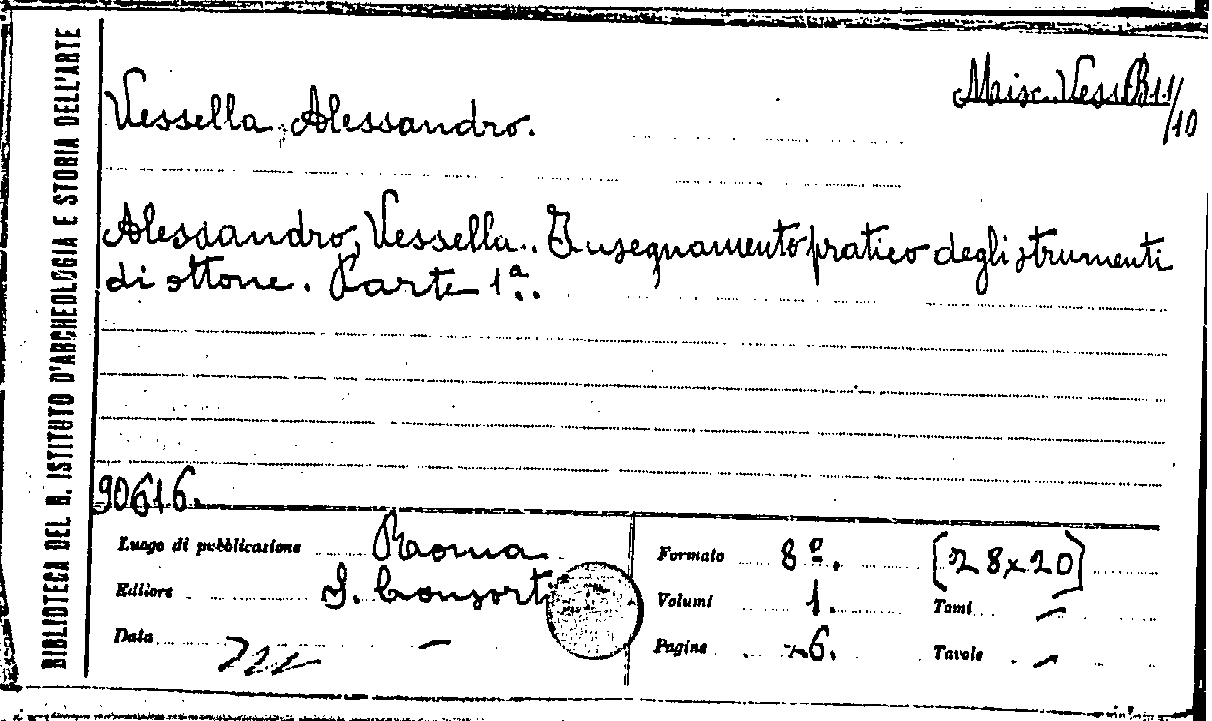 BIBLIOTECA DEL R. ISTITUTO D'ARCHEOLOGIA E STORIA DELL'ARTE
Misc. Vess. B11/10
Vessella Alessandro.
Alessandro, Vessella. Insegnamento pratico degli strumenti
di ottone. Parte 1ª.
90616.
Luogo di pubblicazione Roma
Editore Consorti
Data –
Formato 8º. [28×20]
Volumi 1. Tomi –
Pagine 6. Tavole –